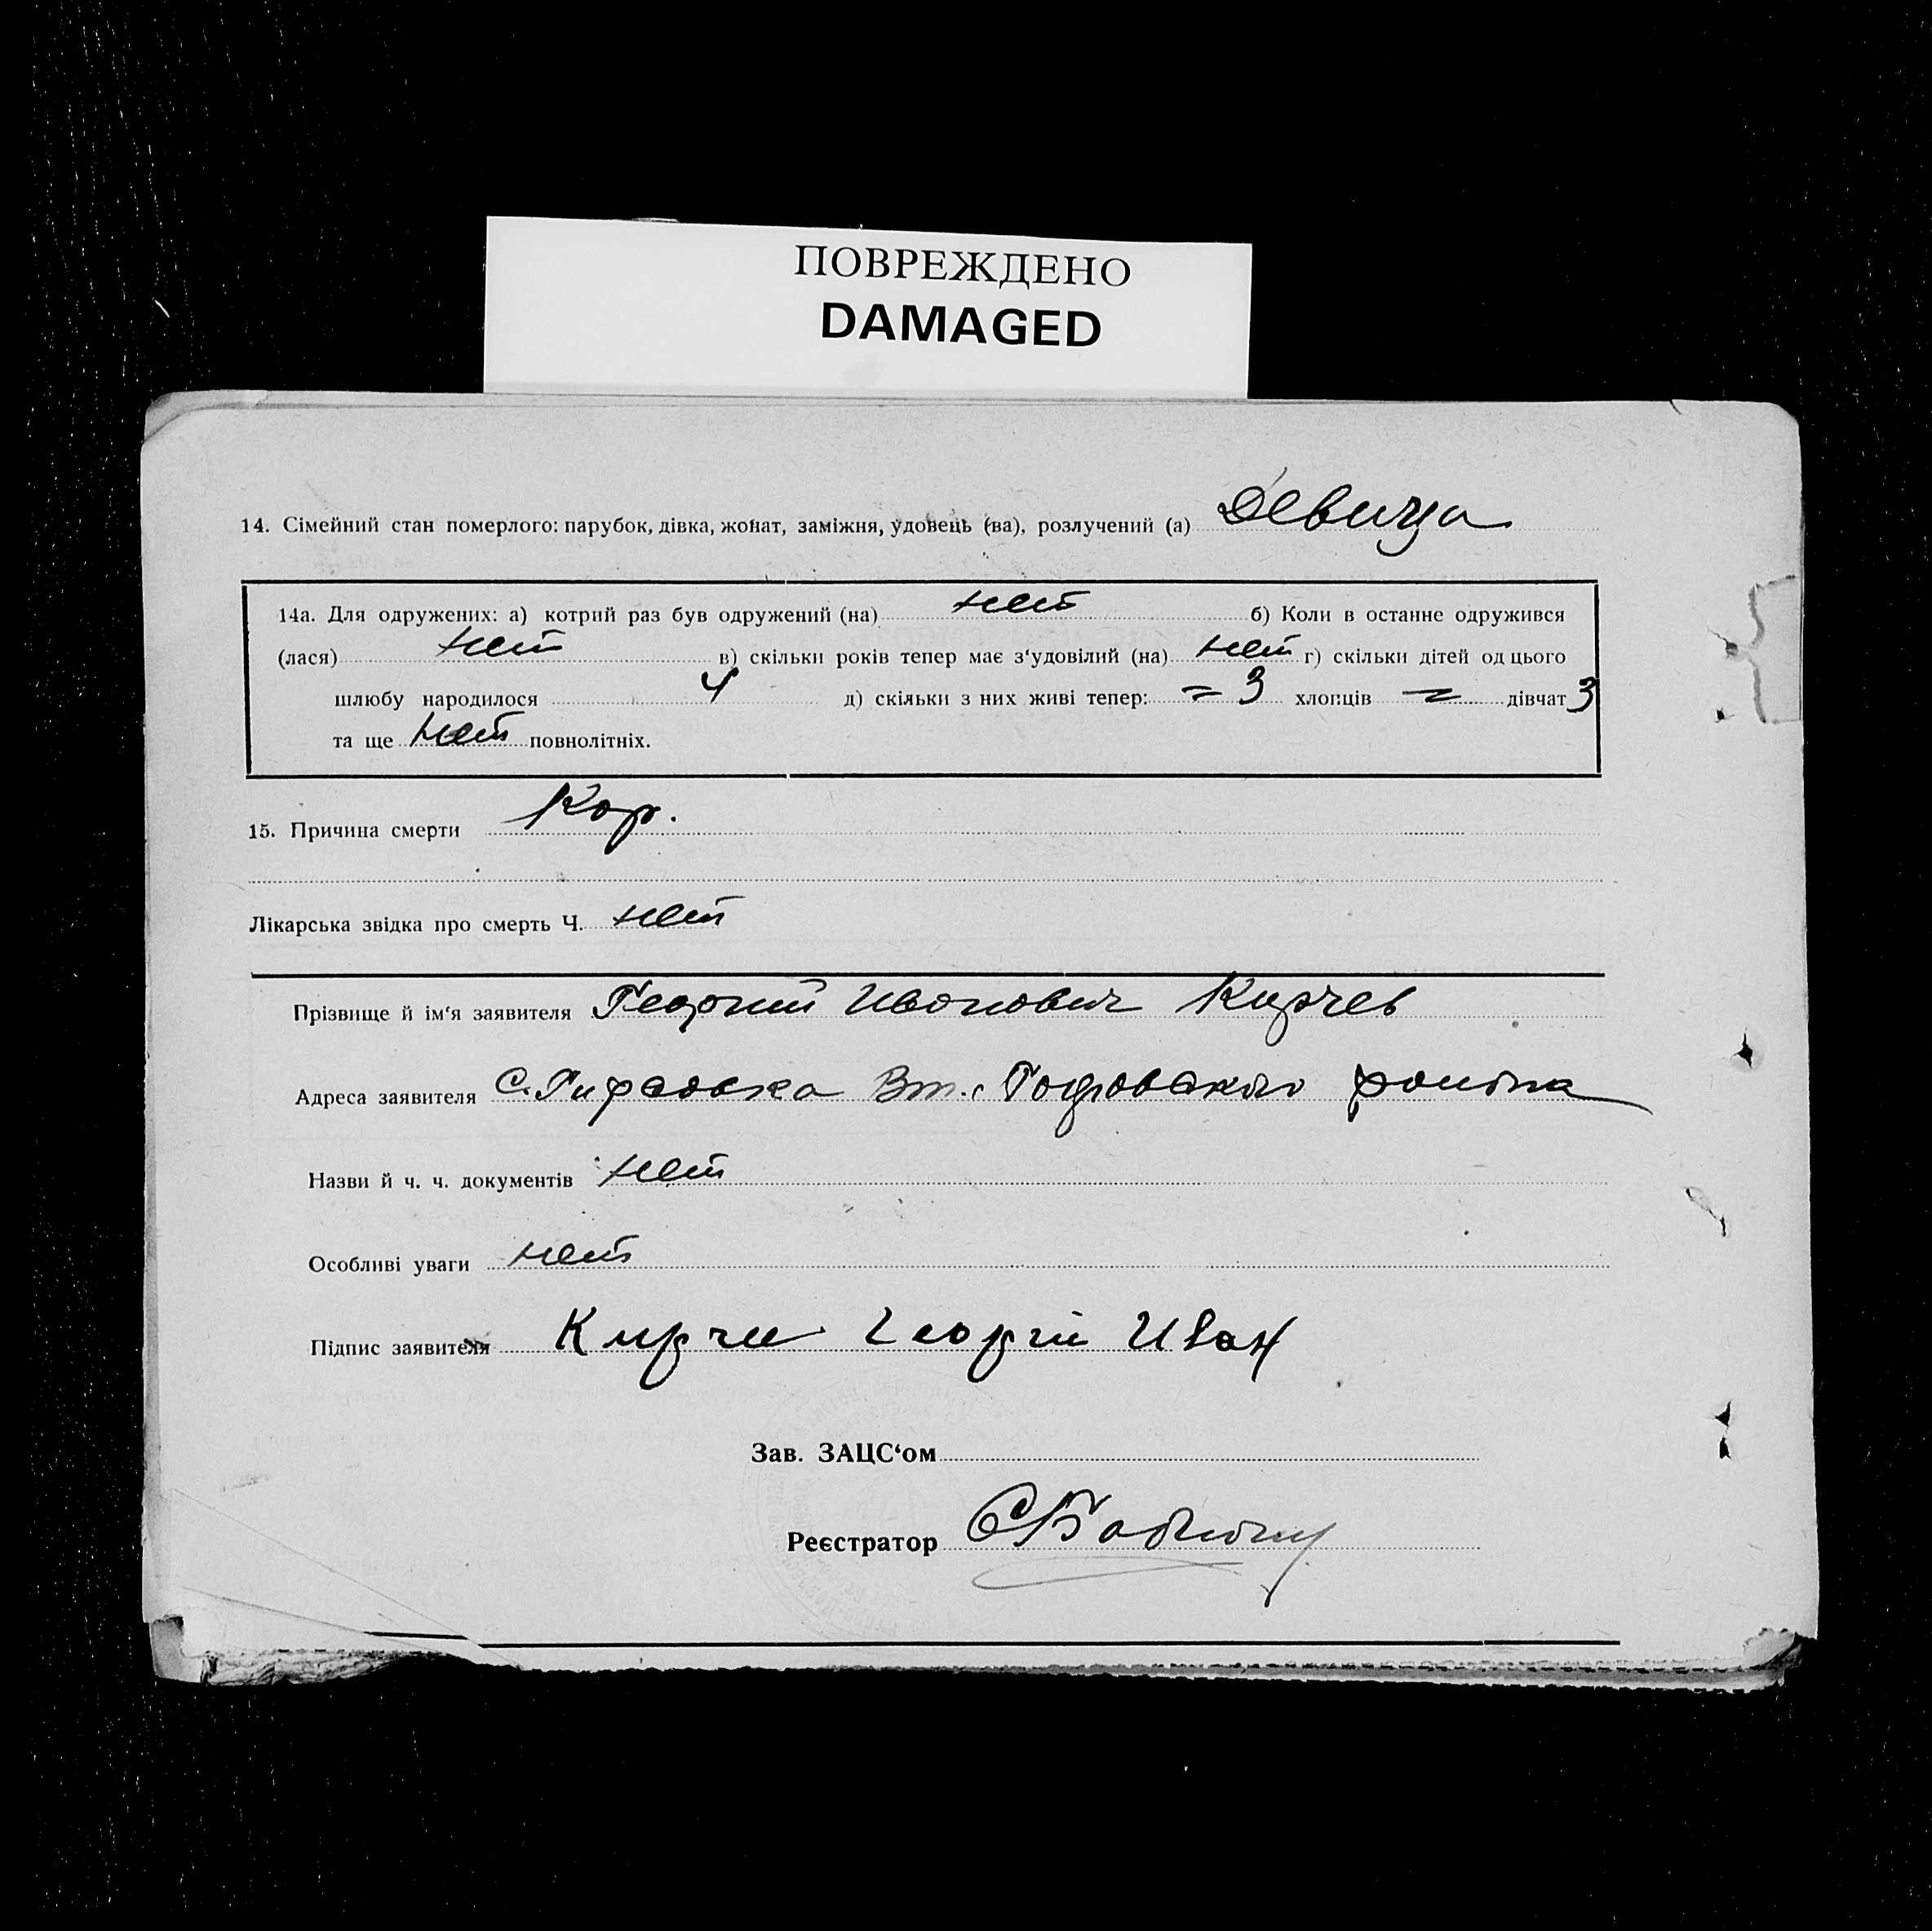 ПОВРЕЖДЕНО
DAMAGED
14. Сімейний стан померлого: парубок, дівка, жонат, заміжня, удовець (ва), розлучений (а) Девица
14а. Для одружених: а) котрий раз був одружений (на) нет б) Коли в останнє одружився
(лася) нет в) скільки років тепер має з‘удовілий (на) нет г) скільки дітей од цього
шлюбу народилося 4 д) скільки з них живі тепер: = 3 хлопців = дівчат 3
та ще нет повнолітніх.
15. Причина смерти Кор.
Лікарська звідка про смерть Ч. нет
Прізвище й ім‘я заявителя Георгий Иванович Кирчев
Адреса заявителя С. Гирсовка района
Назви й ч. ч. документів нет
Особливі уваги нет
Підпис заявителя Кирчев Георгій Иван
Зав. ЗАЦС‘ом
Реєстратор